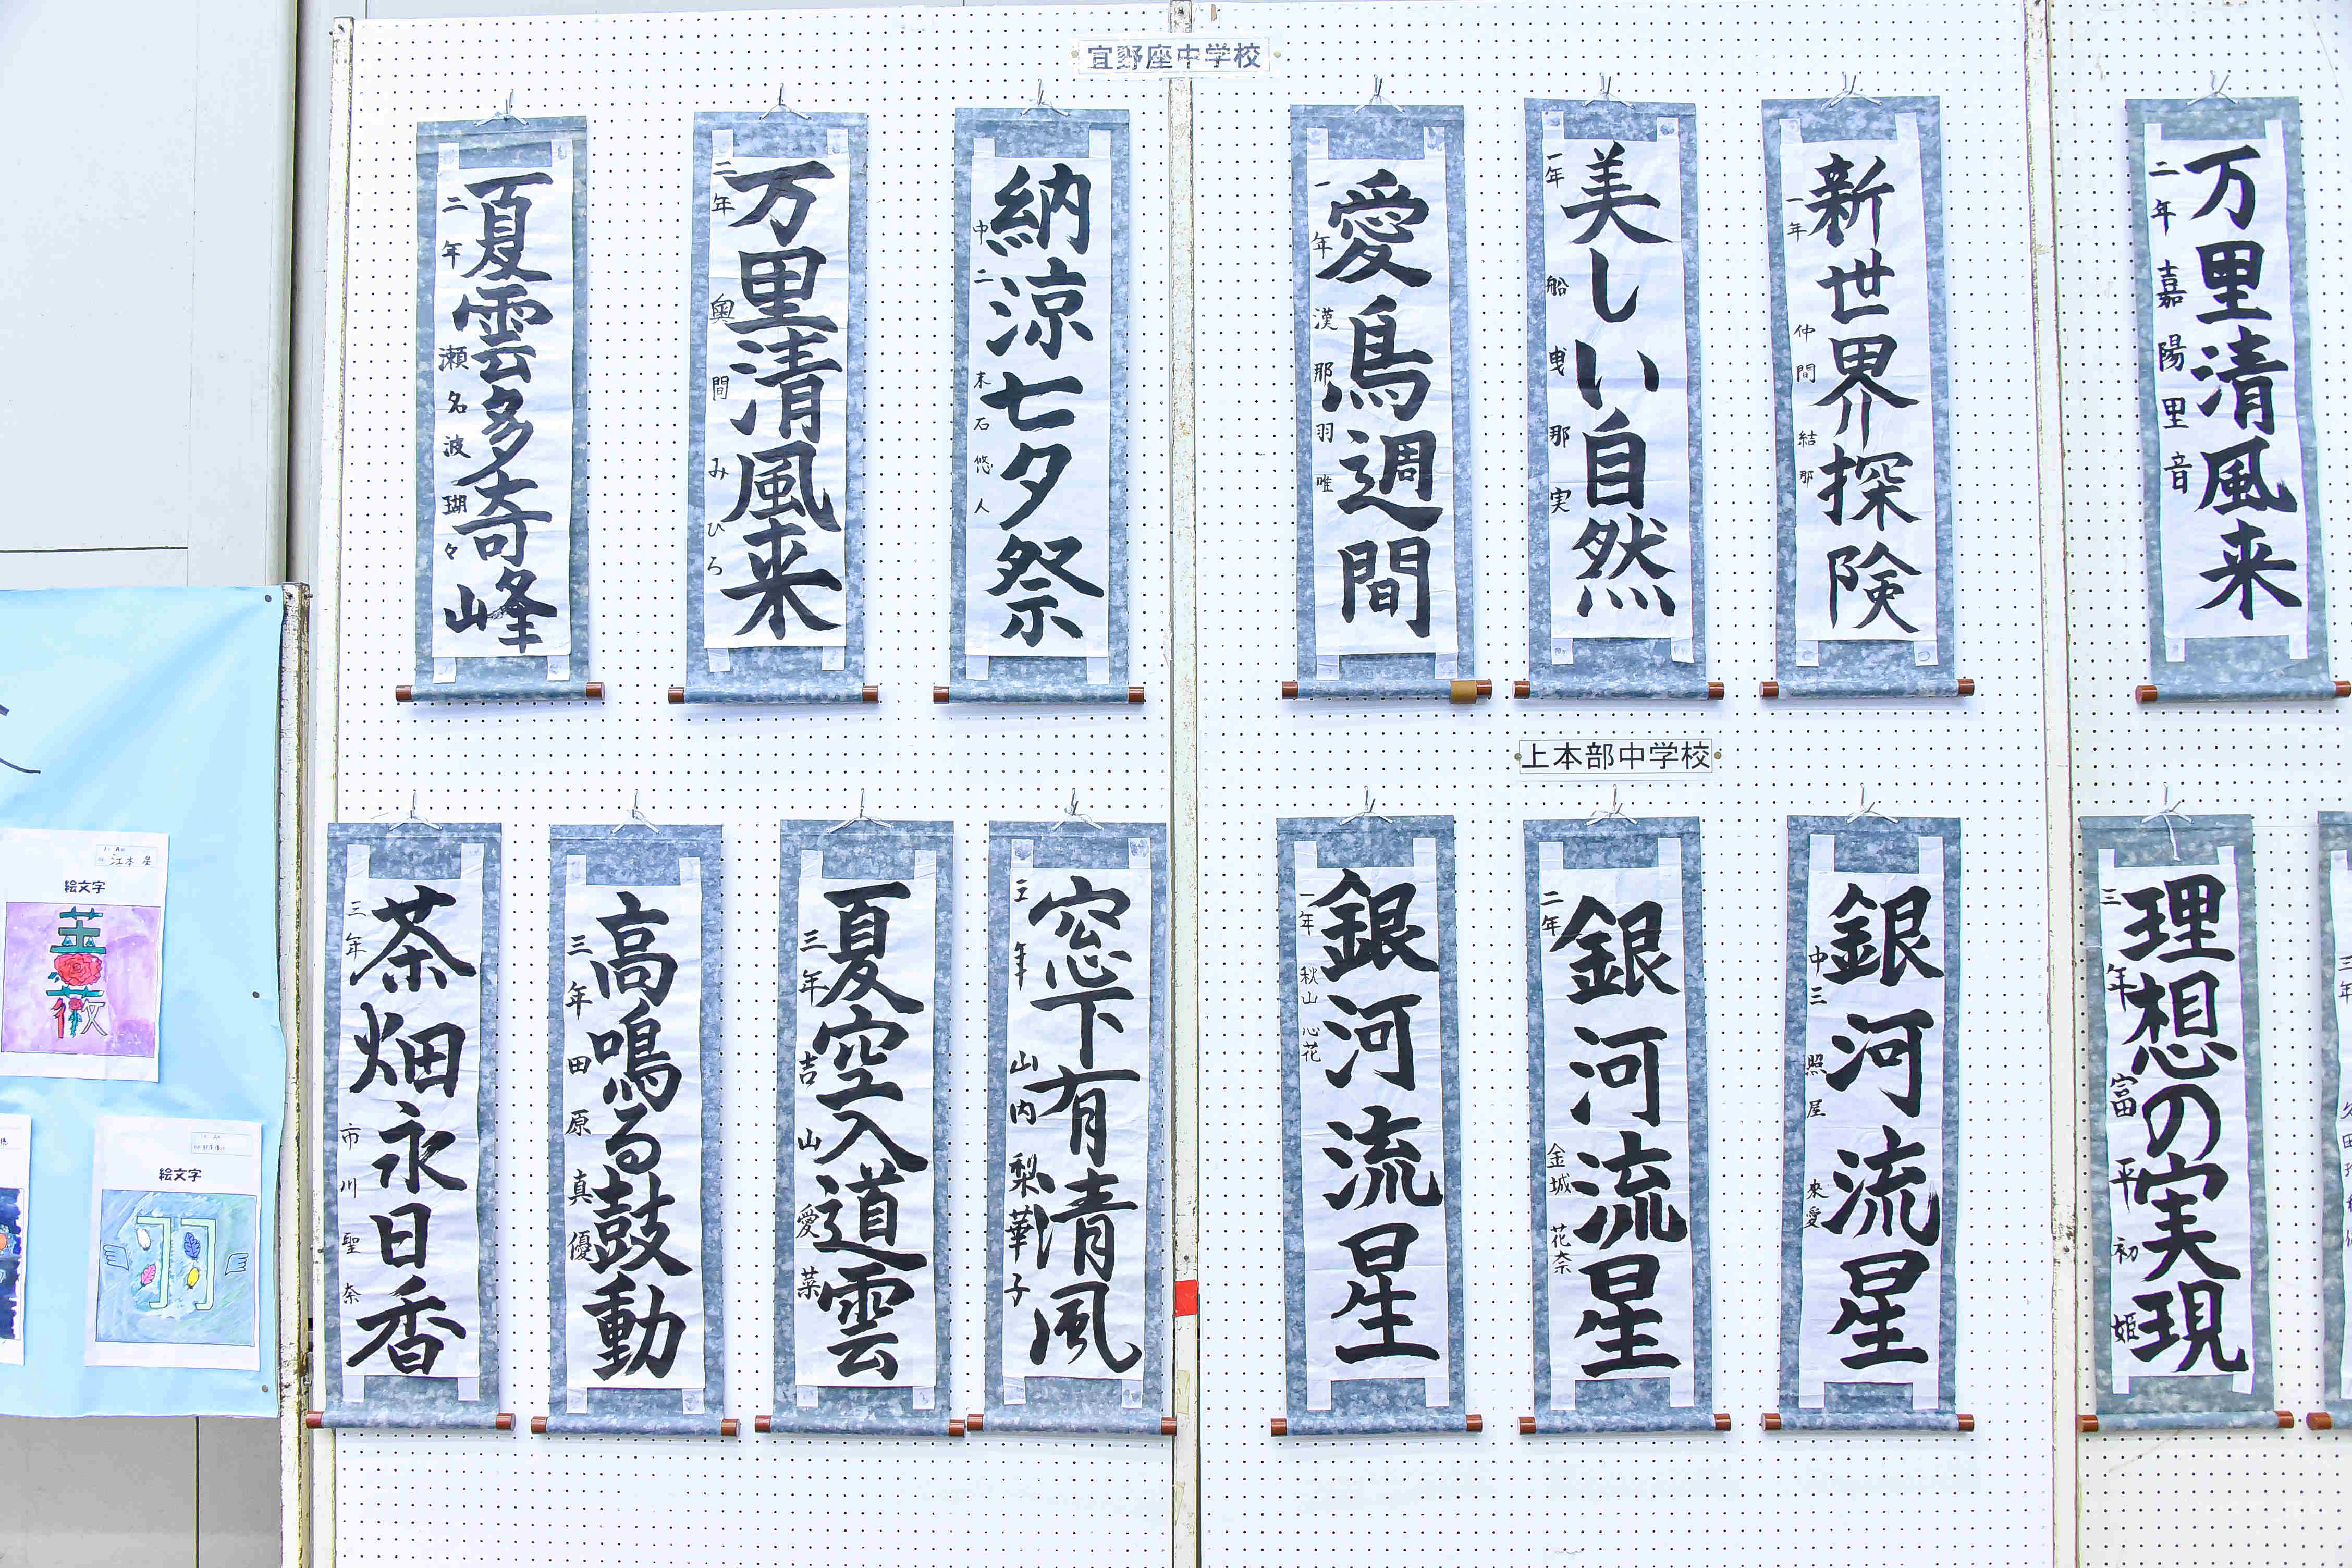 宜野座中学校
夏雲多奇峰
二年 瀬名波瑚々
万里清風来
二年 奥間みひろ
納涼七夕祭
中二 末石悠人
愛鳥週間
一年 漢那羽唯
美しい自然
一年 船曳那実
新世界探険
一年 仲間結那
万里清風来
二年 嘉陽里音
上本部中学校
茶畑永日香
三年 市川聖奈
高鳴る鼓動
三年 田原真優
夏空入道雲
三年 吉山愛菜
窓下有清風
三年 山内梨華子
銀河流星
一年 秋山心花
銀河流星
二年 金城花奈
銀河流星
中三 照屋來愛
理想の実現
三年 富平初姫
江本 星
絵文字
薔薇
絵文字